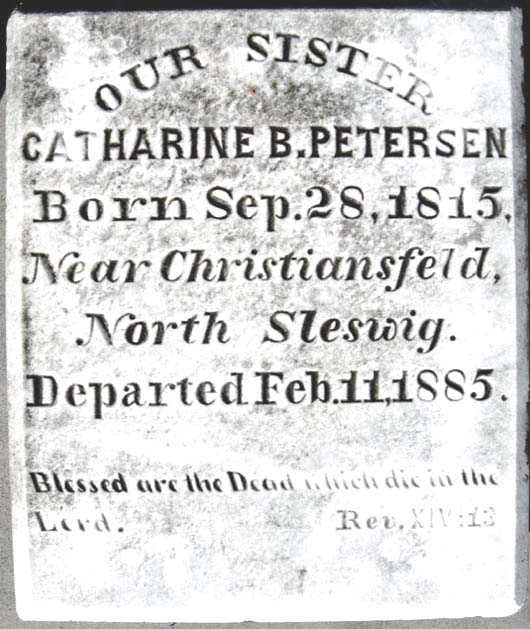 OUR SISTER
CATHARINE B. PETERSEN
Born Sep. 28, 1815,
Near Christiansfeld,
North Sleswig.
Departed Feb. 11, 1885.
Blessed are the Dead which die in the
Lord. Rev. XIV:13